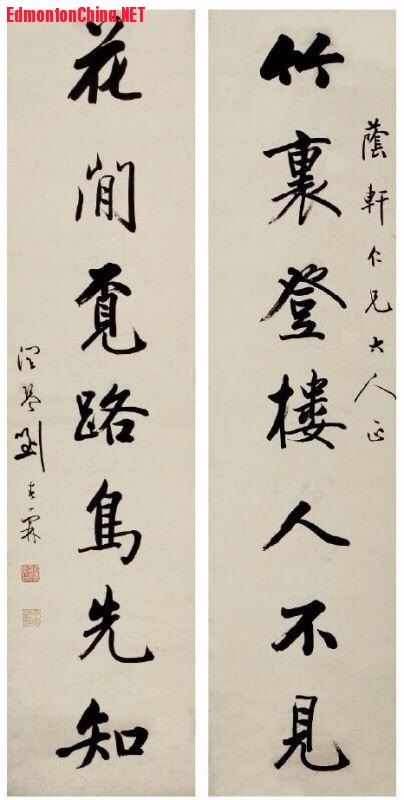 EdmontonChina.NET
蔭軒仁兄大人正
竹裏登樓人不見
花閒覓路鳥先知
潤琴劉春霖